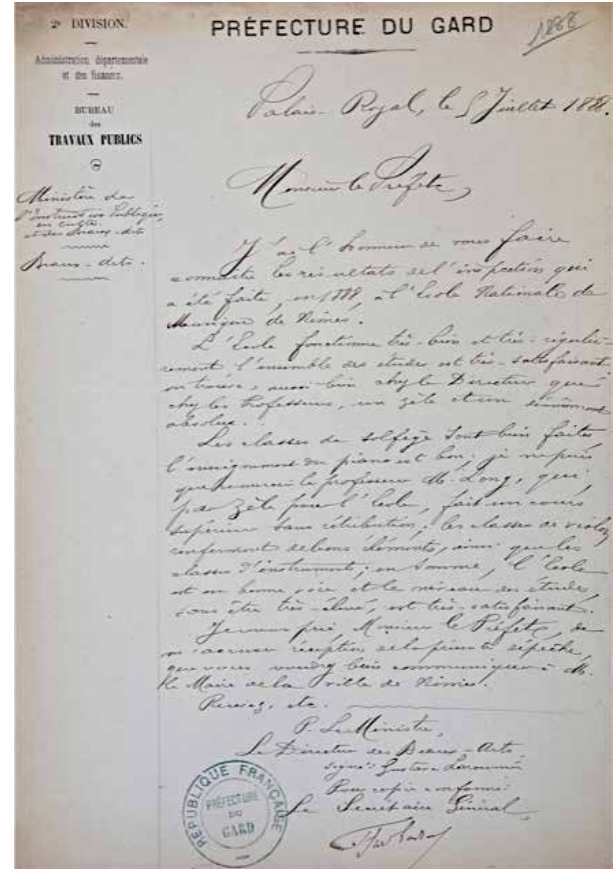 2e DIVISION.
Administration départementale
et des finances.
BUREAU
des
TRAVAUX PUBLICS
Ministère de
l'Instruction Publique,
des Cultes
et des Beaux-Arts
Beaux-Arts.
PRÉFECTURE DU GARD
1888
Palais-Royal, le 5 Juillet 1888.
Monsieur le Préfet,
J'ai l'honneur de vous faire
connaître les résultats de l'inspection qui
a été faite, en 1888, à l'Ecole Nationale de
Musique de Nîmes.
L'Ecole fonctionne très-bien et très-régulière-
ment l'ensemble des études est très-satisfaisant
on trouve, aussi bien chez le Directeur que
chez les Professeurs, un zèle et un dévouement
absolus.
Les classes de solfège sont bien faites
l'enseignement du piano est bon; je ne puis
que remercier le professeur M. Long, qui
par zèle pour l'école, fait un cours
supérieur sans rétribution; les classes de violon
renferment de bons éléments, ainsi que les
classes d'instruments; en somme, l'école
est en bonne voie et le niveau des études,
sans être très-élevé, est très-satisfaisant.
Je vous prie, Monsieur le Préfet, de
m'accuser réception de la présente dépêche,
que vous voudrez bien communiquer à M.
le Maire de la ville de Nîmes.
Recevez, etc.
P. Le Ministre,
Le Directeur des Beaux-Arts
signé: Gustave Larroumet
Pour copie conforme
Le Secrétaire Général,
RÉPUBLIQUE FRANÇAISE
PRÉFECTURE
DU
GARD